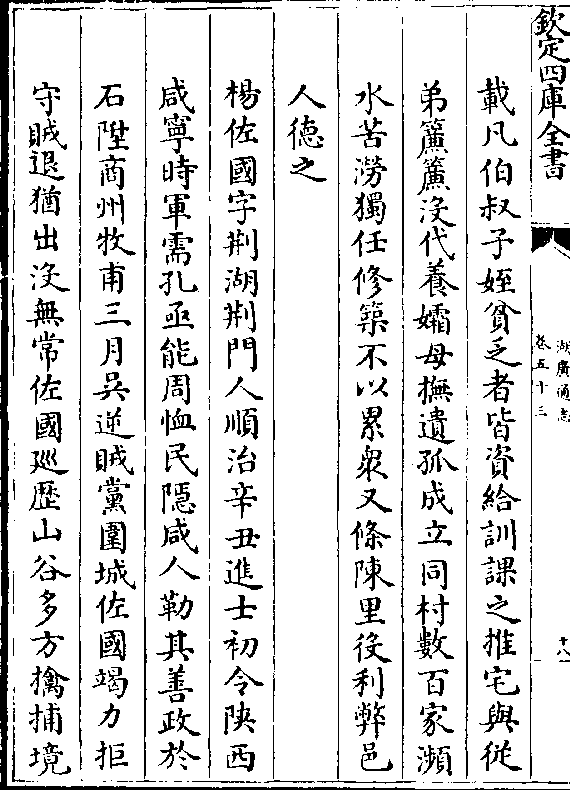 欽定四庫全書
湖廣通志
卷五十三
十八
載凡伯叔子姪貧乏者皆資給訓課之推宅與從
弟簾簾沒代養孀母撫遺孤成立同村數百家瀕
水苦澇獨任修築不以累衆又條陳里役利弊邑
人德之
楊佐國字荆湖荆門人順治辛丑進士初令陝西
咸寧時軍需孔亟能周恤民隱咸人勒其善政於
石陞商州牧甫三月吳逆賊黨圍城佐國竭力拒
守賊退猶出沒無常佐國廵歷山谷多方擒捕境